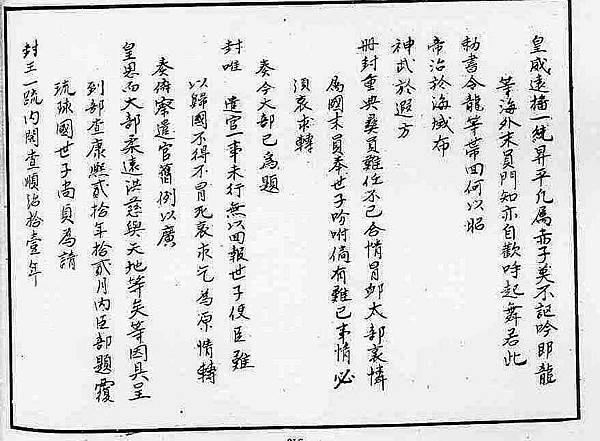 皇威遠播一統昇平凡属赤子莫不記吟即龍
等海外末員門知亦自歡呼起舞若此
勅書令龍等帶回何以昭
帝治於海域布
神武於遐方
冊封重典員難任不已合情冒大部哀憐
為國末員奉世子吩咐倘有難已事情必
須哀求轉
奏今大部已為題
封唯 遣官一事未行無以回報世子使臣雖
以歸國不得不冒死哀求乞為原情轉
奏俯察遣官舊例以廣
皇恩而大部柔遠洪慈與天地等矣等因具呈
到部查康熙貳拾年拾貳月内臣部題覆
琉球國世子尚貞為請
封王一疏内開查順治拾壹年